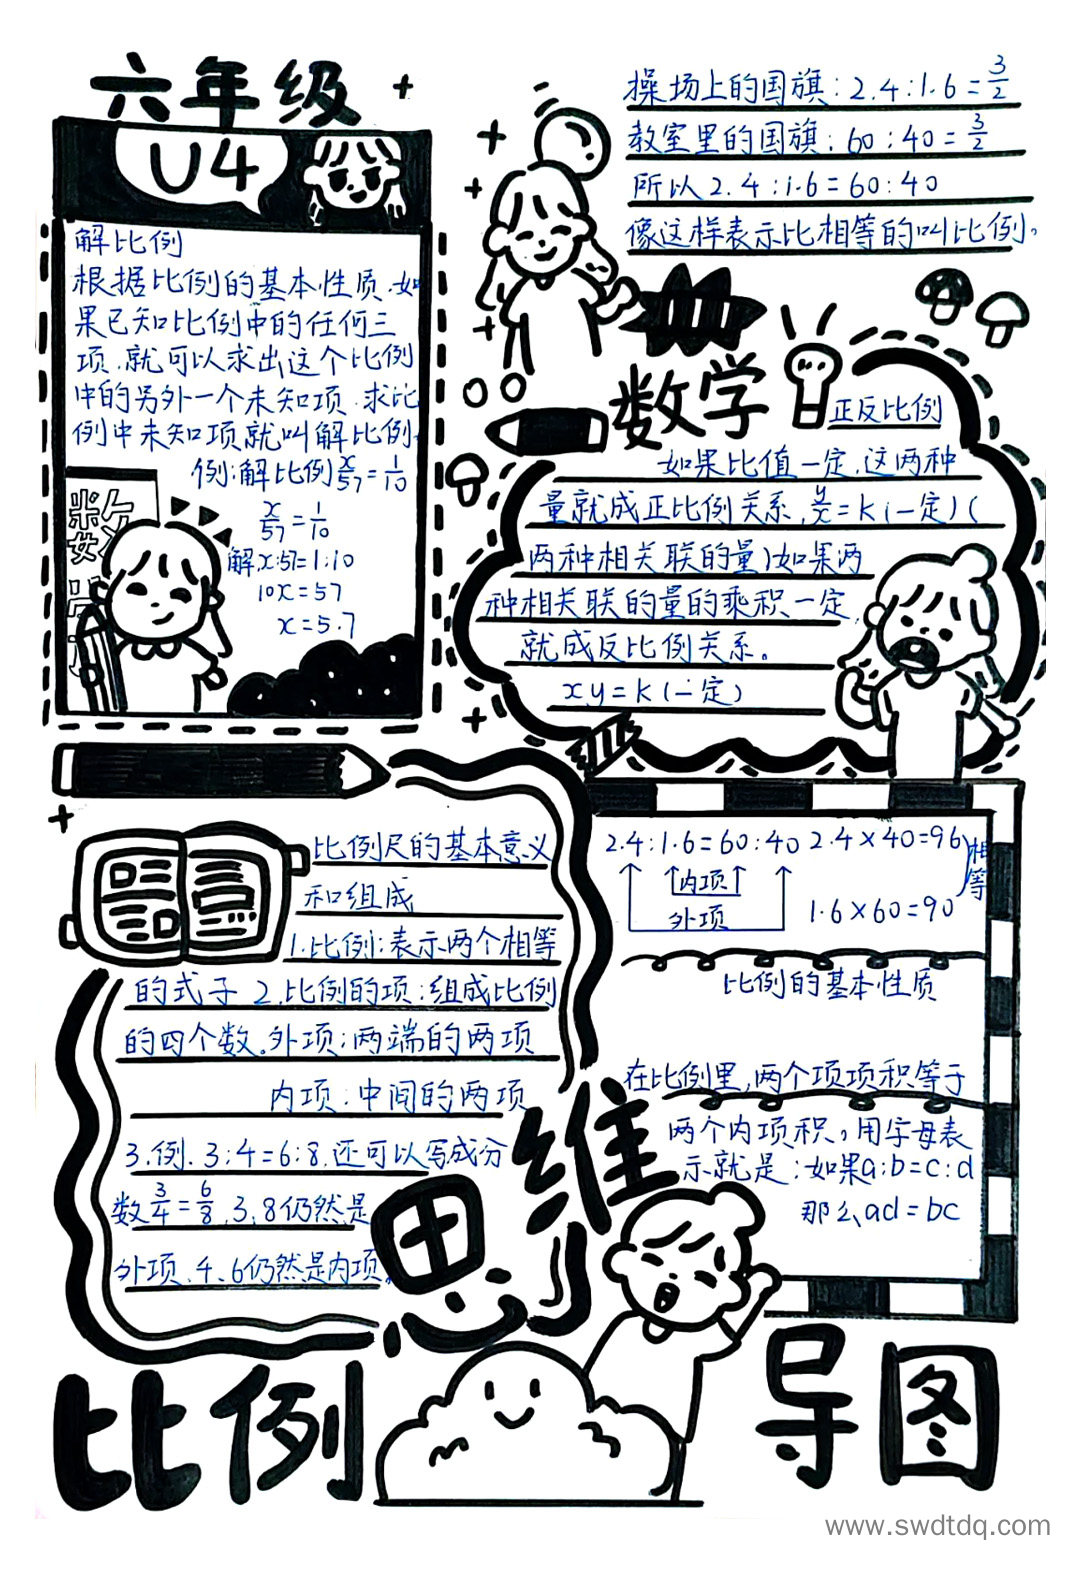 六年级
U4
解比例
根据比例的基本性质,如
果已知比例中的任何三
项,就可以求出这个比例
中的另外一个未知项.求比
例中未知项就叫解比例.
例:解比例x/57=1/10
x/57=1/10
解x:57=1:10
10x=57
x=5.7
数
数
学
操场上的国旗:2.4:1.6=3/2
教室里的国旗:60:40=3/2
所以2.4:1.6=60:40
像这样表示比相等的叫比例。
数学
正反比例
如果比值一定,这两种
量就成正比例关系,y/x=k(一定)(
两种相关联的量)如果两
种相关联的量的乘积一定,
就成反比例关系。
xy=k(一定)
比例尺的基本意义
和组成
1.比例:表示两个相等
的式子 2.比例的项:组成比例
的四个数。外项:两端的两项
内项:中间的两项
3.例.3:4=6:8,还可以写成分
数3/4=6/8,3、8仍然是
外项、4、6仍然是内项。
2.4:1.6=60:40 2.4×40=96
相等
内项
外项
1.6×60=90
比例的基本性质
在比例里,两个项项积等于
两个内项积,用字母表
示就是:如果a:b=c:d
那么ad=bc
思维
比例
导图
www.swdtdq.com